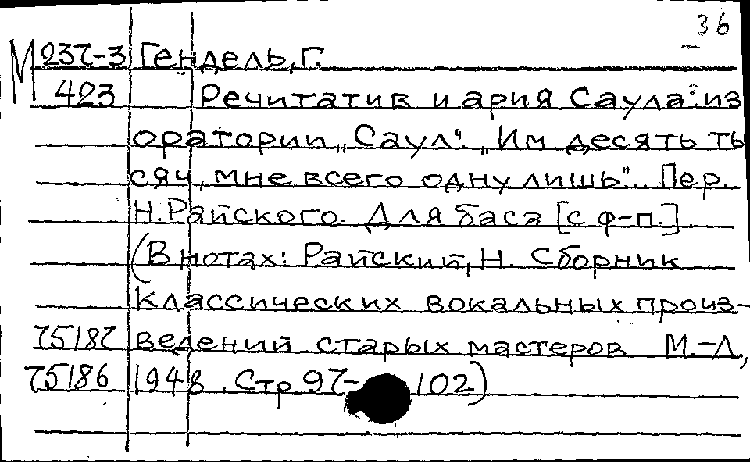 36
М 237-3 Гендель, Г.
423 Речитатив и ария Саула: из
оратории „Саул". „Им десять ты
сяч, мне всего одну лишь". Пер.
Н. Райского. Для баса [с ф-п.]
(В нотах: Райский, Н. Сборник
классических вокальных произ-
75187 ведений старых мастеров М.-Л,
75186 1948. Стр 97-102)